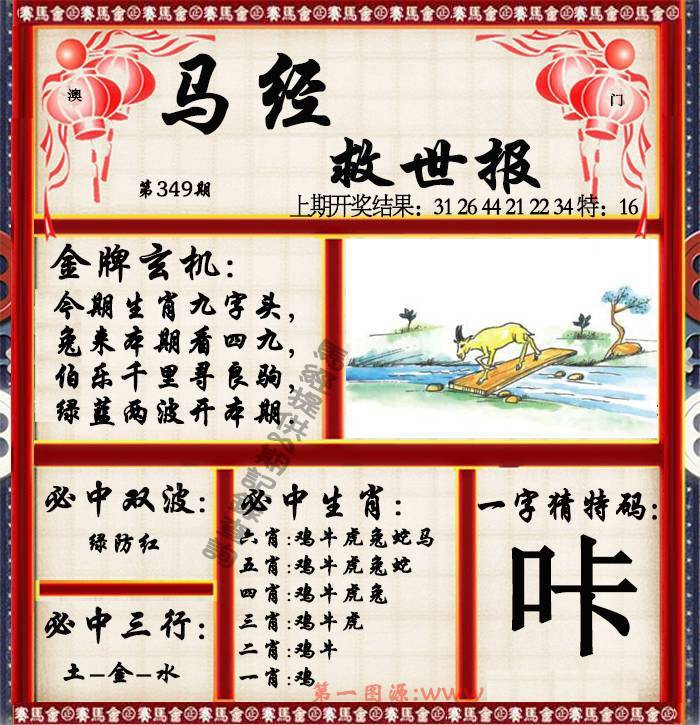 賽馬會金正 賽馬會金正 賽馬會金正 賽馬會金正 賽馬會金正 賽馬會金正
澳
门
马经
救世报
第349期
上期开奖结果：31 26 44 21 22 34 特：16
金牌玄机：
今期生肖九字头，
兔来本期看四九，
伯乐千里寻良驹，
绿蓝两波开本期.
必中双波：
绿防红
必中三行：
土-金-水
必中生肖：
六肖:鸡牛虎兔蛇马
五肖:鸡牛虎兔蛇
四肖:鸡牛虎兔
三肖:鸡牛虎
二肖:鸡牛
一肖:鸡
一字猜特码：
咔
第一图源:www